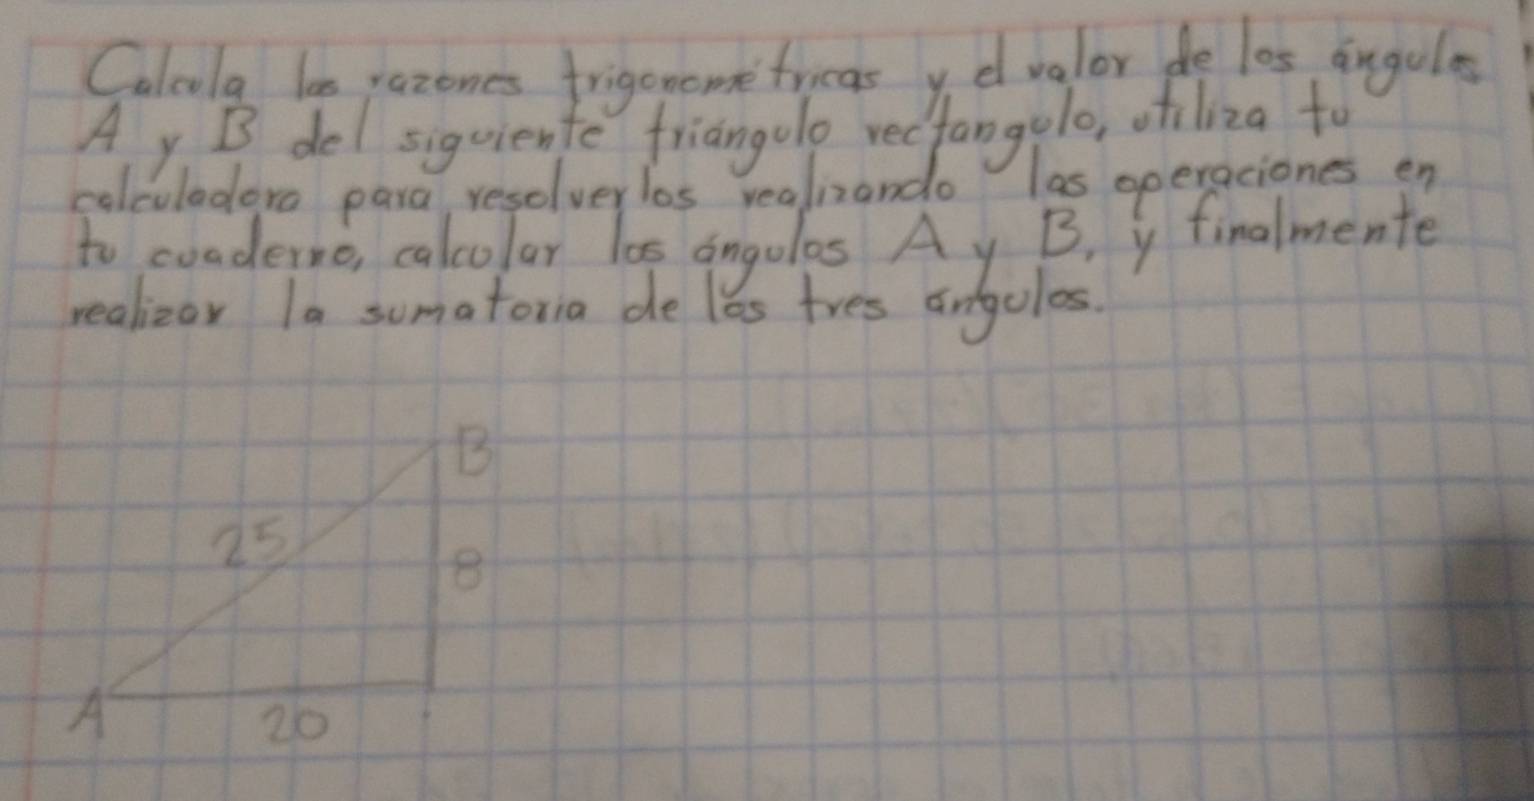 Calcula las razones trigonométricas y el valor de los ángulos
A y B del siguiente triángulo rectangulo, utiliza tu
calculadora para resolverlos realizando las operaciones en
tu cuaderno, calcular los ángulos A y B, y finalmente
realizar la sumatoria de los tres ángulos.
B
25
8
A
20